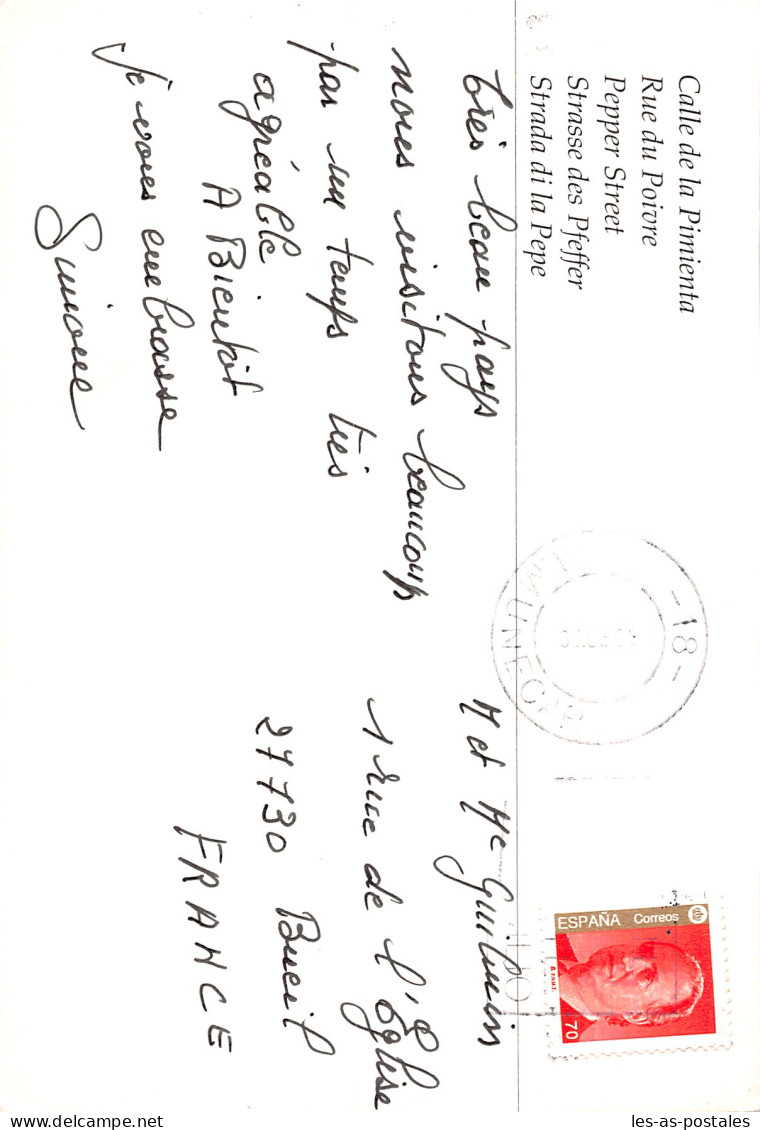 Calle de la Pimienta
Rue du Poivre
Pepper Street
Strasse des Pfeffer
Strada di la Pepe
très beau pays
nous visitons beaucoup
par un temps très
agréable
A Bientôt
Je vous embrasse
Simone
-18-
ESPAÑA Correos
70
M et Me Guilmin
1 rue de l'Eglise
27730 Bueil
FRANCE
les-as-postales